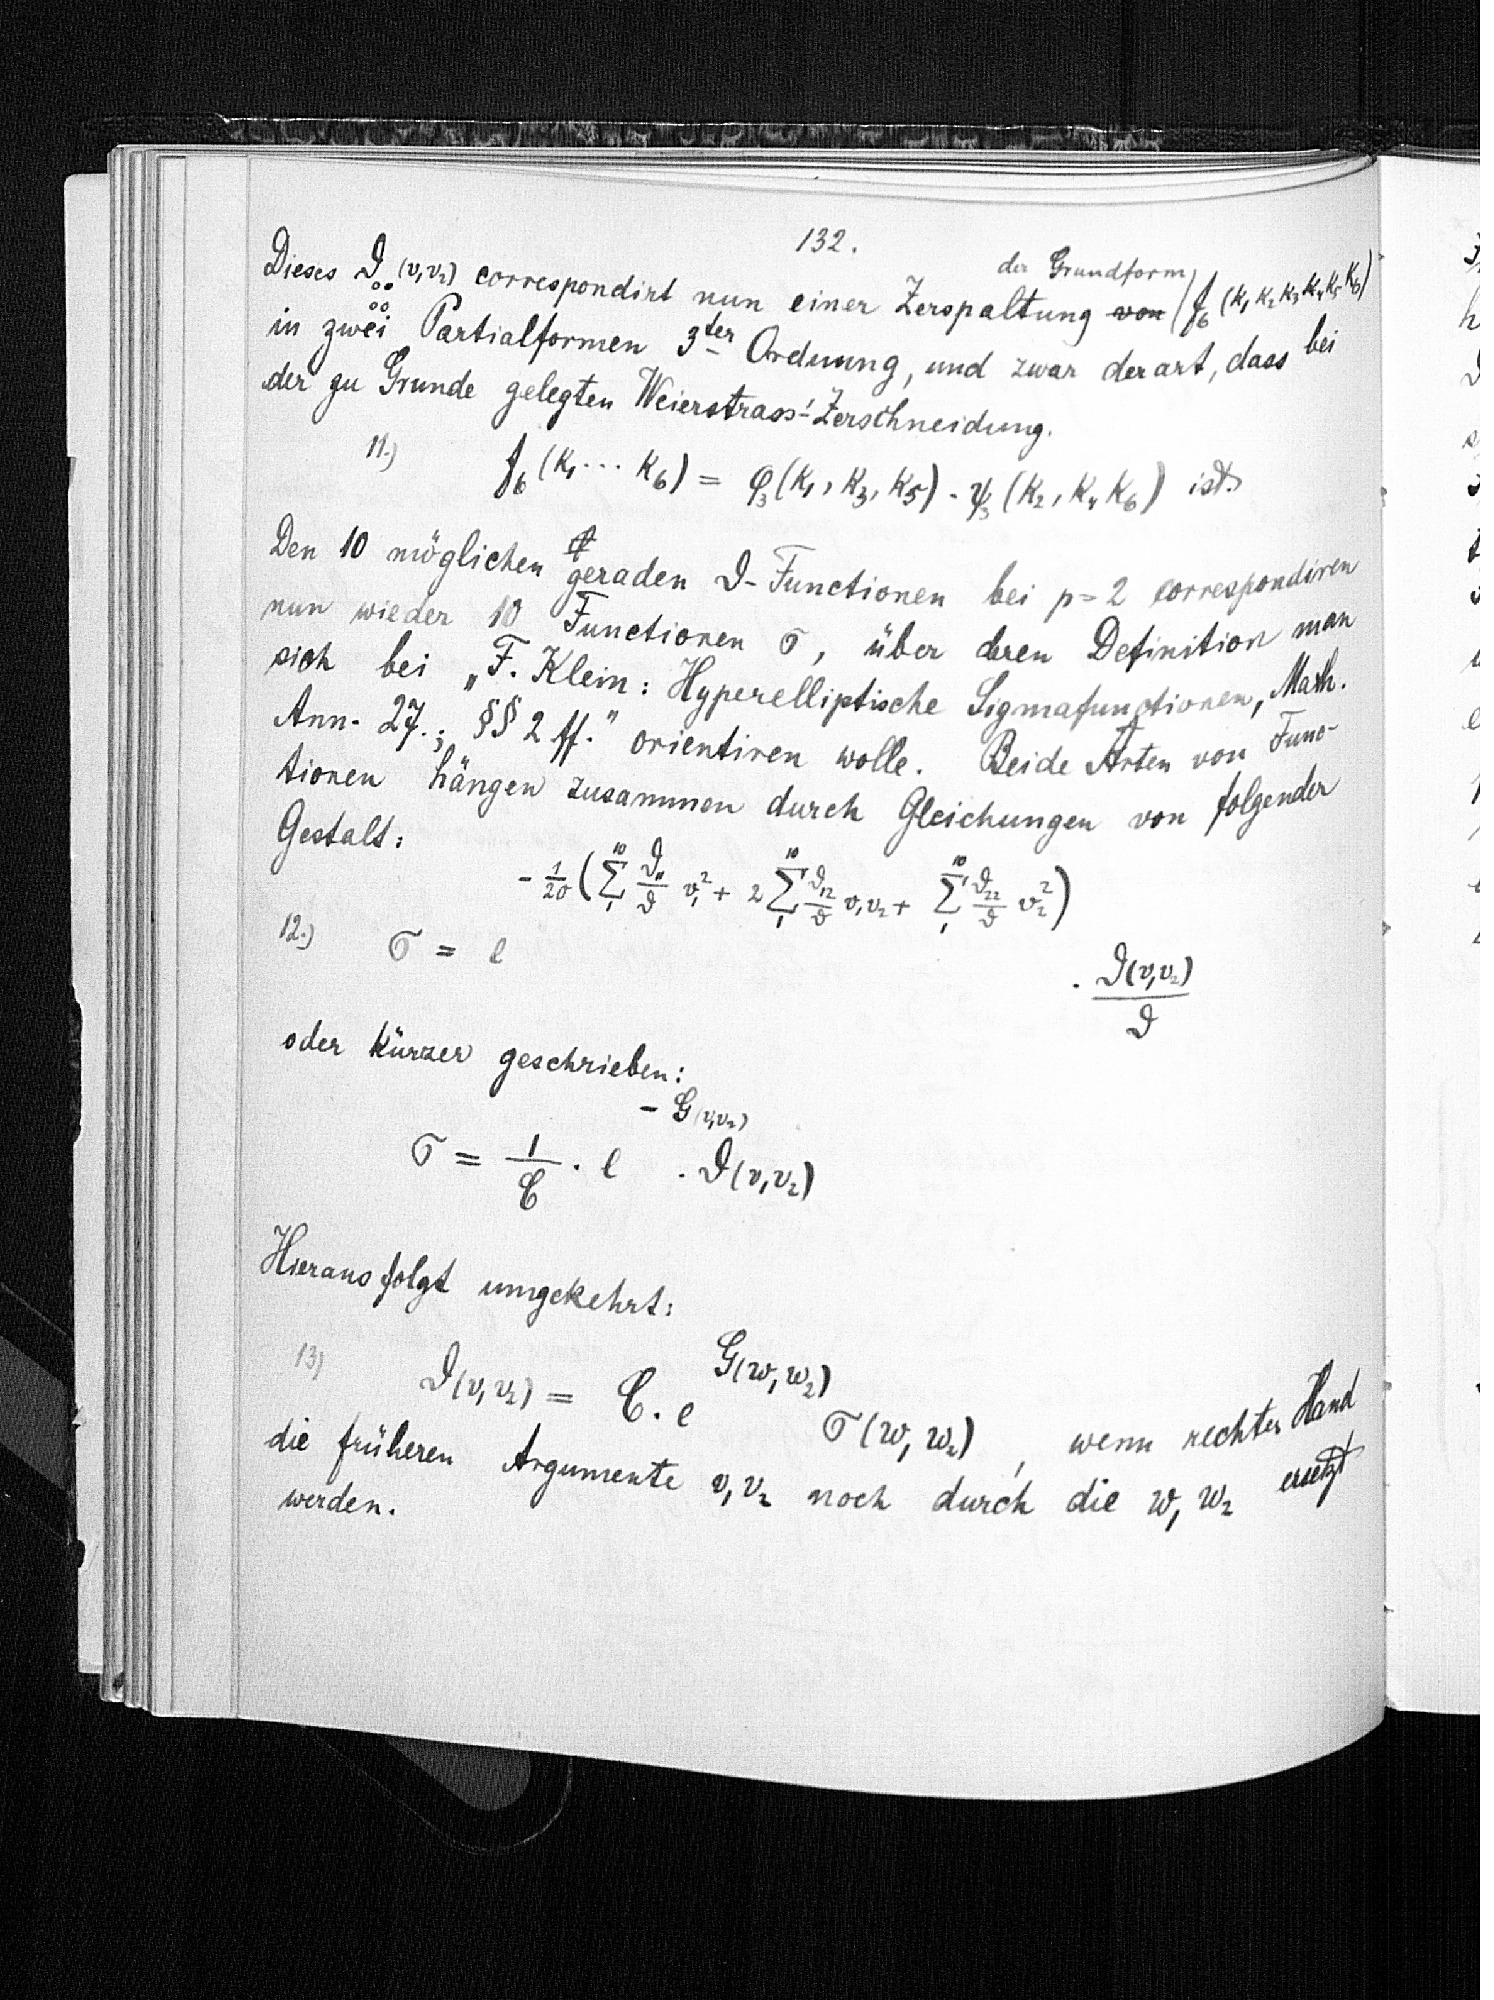 132.
der Grundform
Dieses ϑ₀₀₀₀(v₁v₂) correspondirt nun einer Zerspaltung ~~von~~ f₆ (k₁ k₂ k₃ k₄ k₅ k₆)
in zwei Partialformen 3ter Ordnung, und zwar derart, dass bei
der zu Grunde gelegten Weierstrass'Zerschneidung.
11.) f₆ (k₁ ... k₆) = φ₃(k₁, k₃, k₅) . ψ₃ (k₂, k₄ k₆) ist.
Den 10 möglichen geraden ϑ-Functionen bei p=2 correspondiren
nun wieder 10 Functionen σ, über deren Definition man
sich bei „F. Klein: Hyperelliptische Sigmafunctionen, Math.
Ann. 27.; §§ 2 ff." orientiren wolle. Beide Arten von Func-
tionen hängen zusammen durch Gleichungen von folgender
Gestalt:
- 1/20 ( Σ₁¹⁰ ϑ₁₁/ϑ v₁² + 2 Σ₁¹⁰ ϑ₁₂/ϑ v₁v₂ + Σ₁¹⁰ ϑ₂₂/ϑ v₂² )
12.) σ = e . ϑ(v₁v₂)/ϑ
oder kürzer geschrieben:
- G(v₁v₂)
σ = 1/C . e . ϑ(v₁v₂)
Hieraus folgt umgekehrt:
G(w₁w₂)
13) ϑ(v₁v₂) = C . e σ(w₁w₂), wenn rechter Hand
die früheren Argumente v₁v₂ noch durch die w₁w₂ ersetzt
werden.